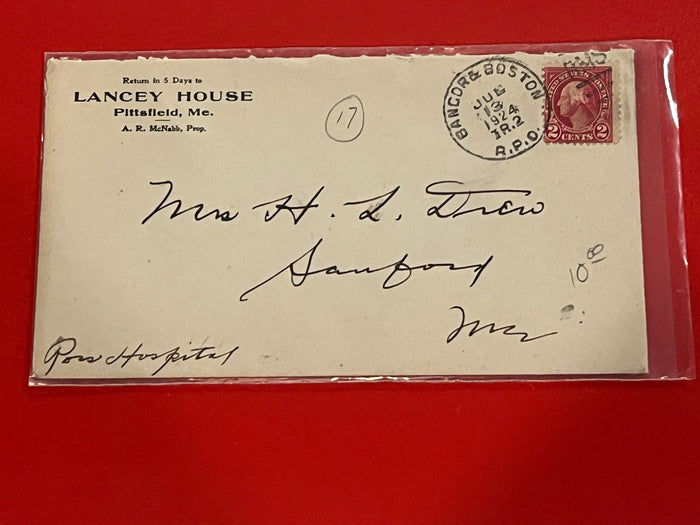 Return in 5 Days to
LANCEY HOUSE
Pittsfield, Me.
A. R. McNabb, Prop.
17
BANGOR & BOSTON
13
1924
TR.2
R.P.O.
UNITED STATES POSTAGE
2 CENTS 2
Mrs H. L. Drew
Sanford
10 00
Me
Hospital